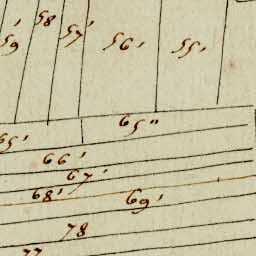 59' 58 57' 56' 55'
65' 65"
66'
67'
68' 69'
78
77